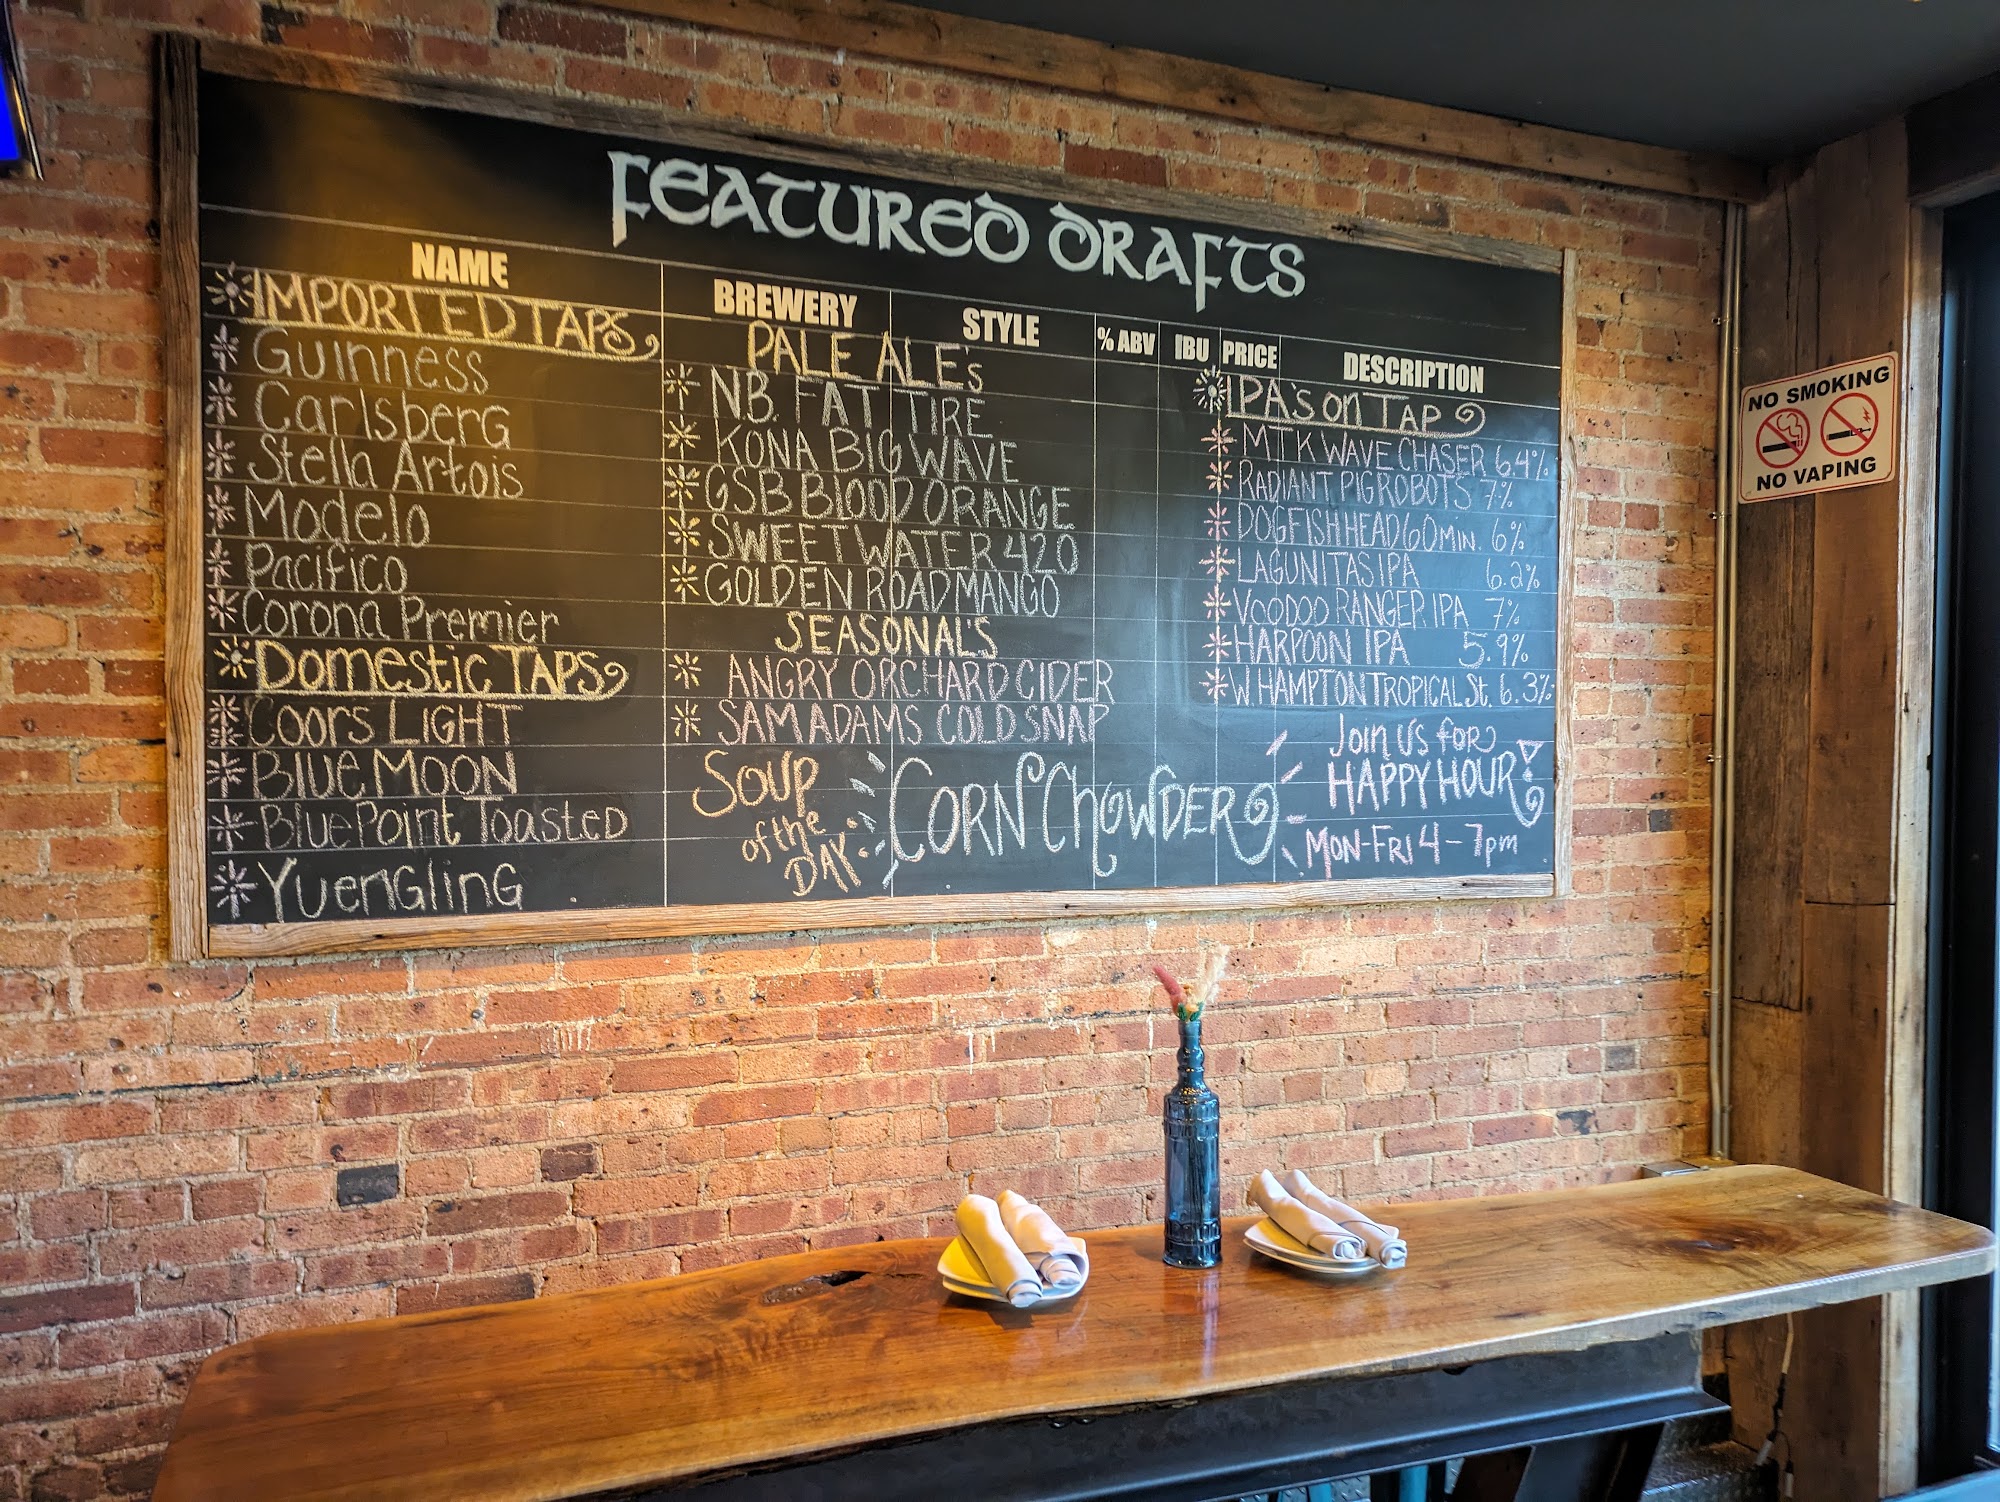 FEATURED DRAFTS
NAME
BREWERY
STYLE
% ABV
IBU
PRICE
DESCRIPTION
IMPORTED TAPS
Guinness
Carlsberg
Stella Artois
Modelo
Pacifico
Corona Premier
Domestic TAPS
COORS LIGHT
BLUE MOON
Blue Point Toasted
Yuengling
PALE ALE's
N.B. FAT TIRE
KONA BIG WAVE
GSB BLOOD ORANGE
SWEETWATER 420
GOLDEN ROAD MANGO
SEASONAL'S
ANGRY ORCHARD CIDER
SAM ADAMS COLD SNAP
Soup
of the
DAY
CORN CHOWDER
IPA's on TAP
MTK WAVE CHASER 6.4%
RADIANT PIG ROBOTS 7%
DOGFISH HEAD 60 MIN. 6%
LAGUNITAS IPA 6.2%
VOODOO RANGER IPA 7%
HARPOON IPA 5.9%
W. HAMPTON TROPICAL St. 6.3%
Join us for
HAPPY HOUR!
MON-FRI 4-7pm
NO SMOKING
NO VAPING